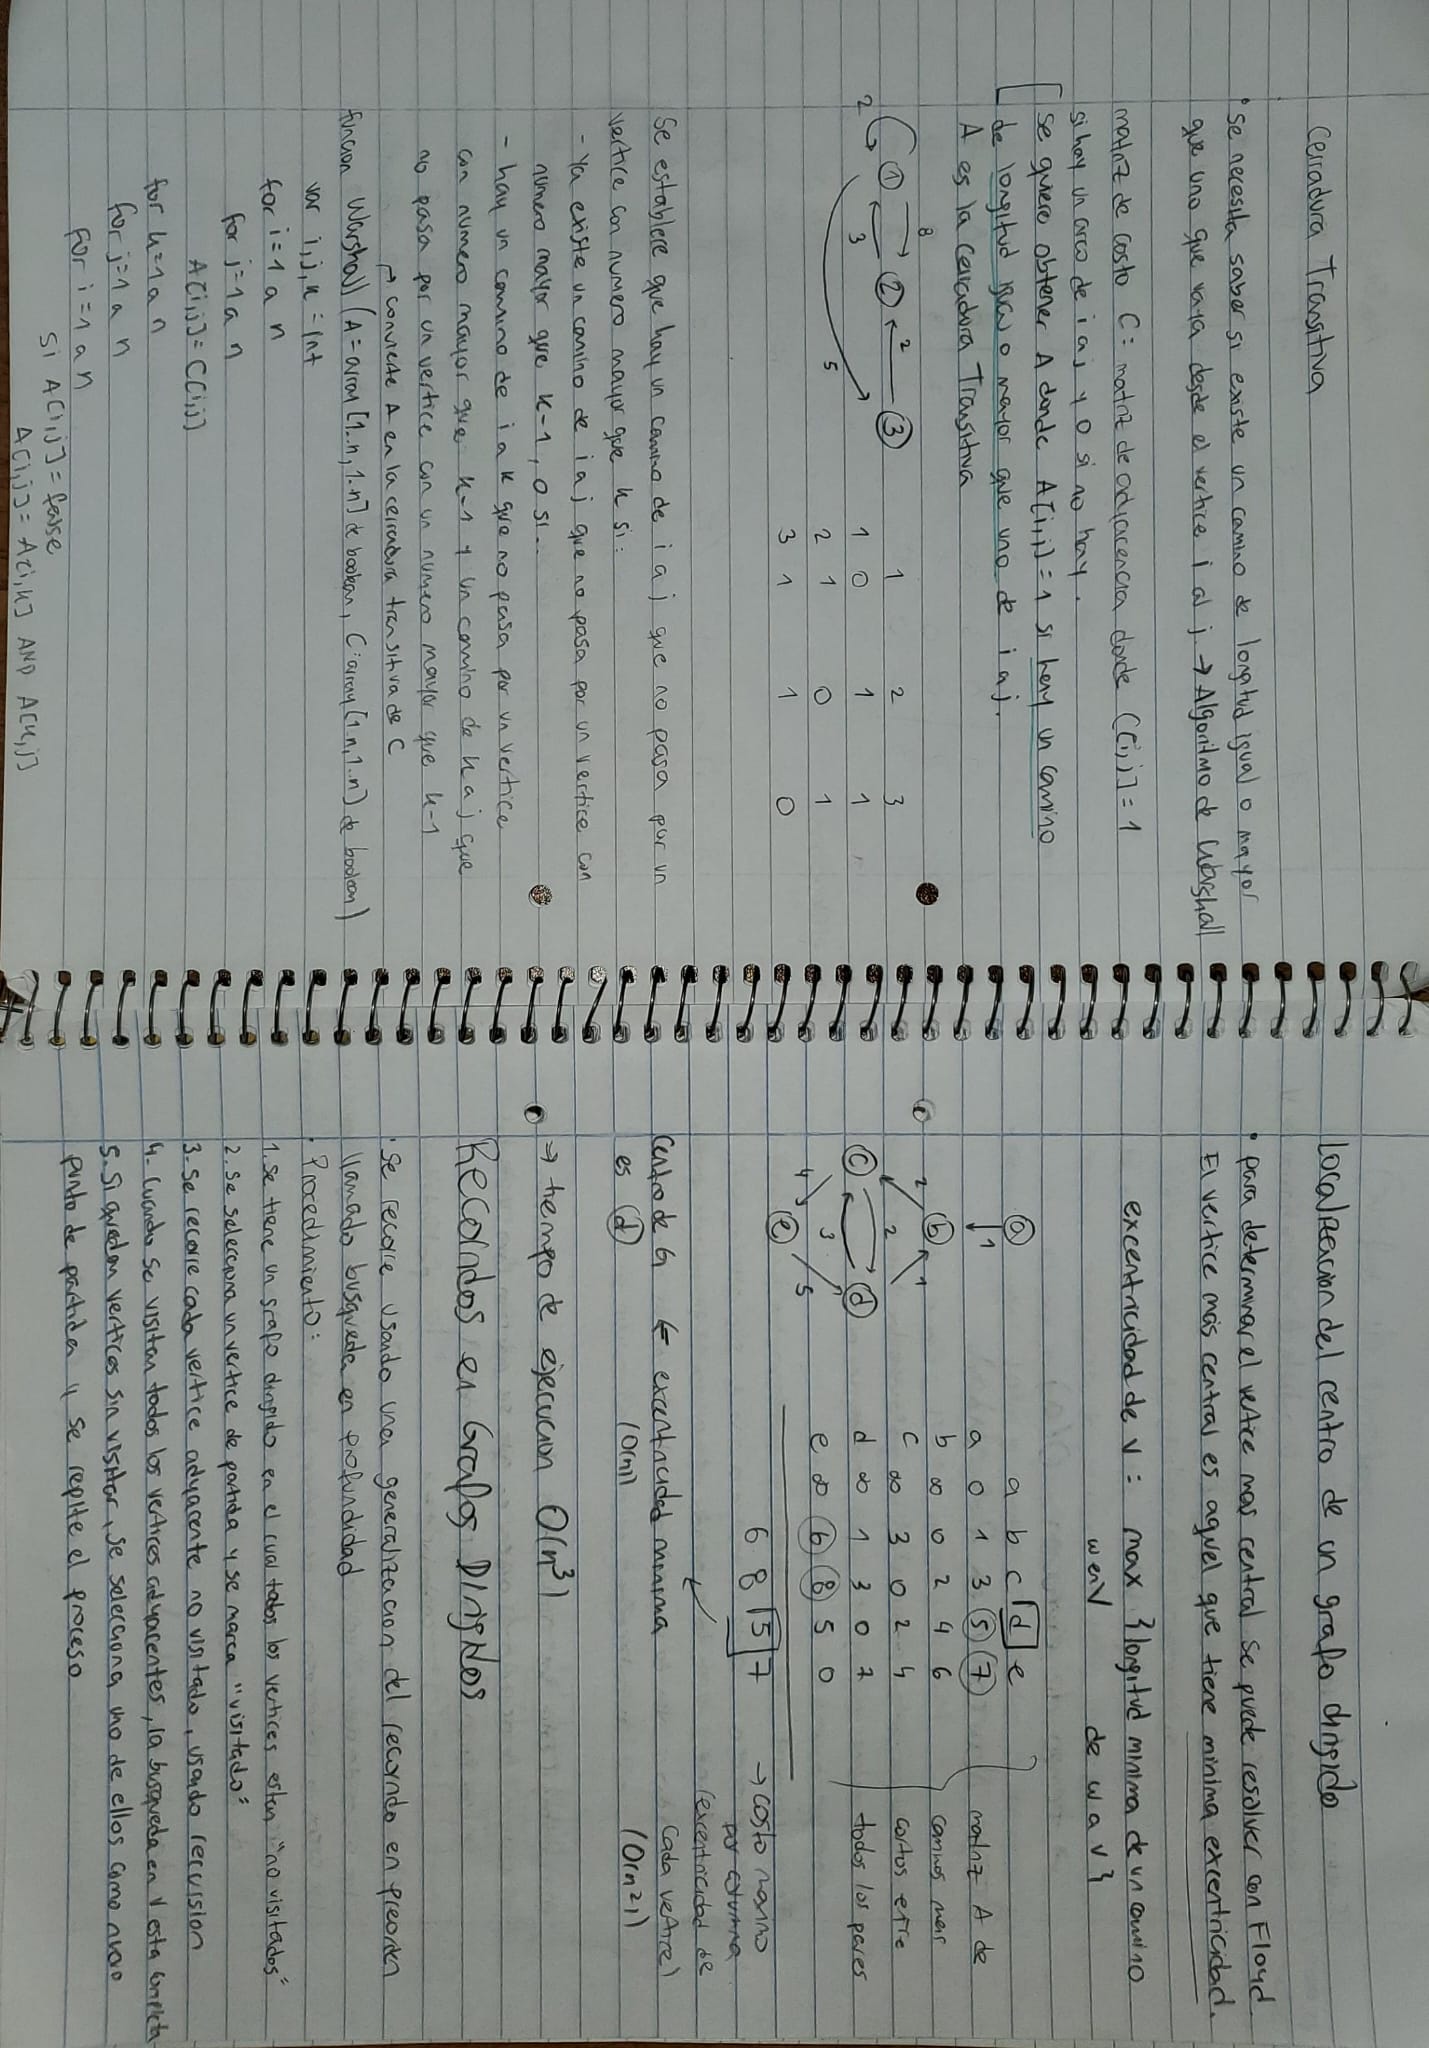 Cerradura Transitiva
· Se necesita saber si existe un camino de longitud igual o mayor
que uno que vaya desde el vertice i al j → Algoritmo de Warshall
matriz de costo C = matriz de adyacencia donde C[i,j] = 1
si hay un arco de i a j y 0 si no hay.
Se quiere obtener A donde A[i,j] = 1 si hay un camino
de longitud igual o mayor que uno de i a j.
A es la cerradura Transitiva
8
2 1 3 2 2 3
5
1 2 3
1 0 1 1
2 1 0 1
3 1 1 0
Se establece que hay un camino de i a j que no pasa por un
vertice con numero mayor que k si:
- Ya existe un camino de i a j que no pasa por un vertice con
numero mayor que k-1, o si..
- hay un camino de i a k que no pasa por un vertice
con numero mayor que k-1 y un camino de k a j que
no pasa por un vertice con un numero mayor que k-1
→ convierte A en la cerradura transitiva de C
funcion Warshall (A = array [1..n, 1..n] de boolean, C: array [1..n, 1..n] de boolean)
var i,j,k = int
for i = 1 a n
for j = 1 a n
A[i,j] = C[i,j]
for k = 1 a n
for j = 1 a n
for i = 1 a n
si A[i,j] = false
A[i,j] = A[i,k] AND A[k,j]
Localizacion del centro de un grafo dirigido
· para determinar el vertice mas central se puede resolver con Floyd.
El vertice más central es aquel que tiene minima excentricidad.
excentricidad de v = max { longitud minima de un camino
w en V de w a v }
a
1
b 1
2 2
c d
3
4 5
e
a b c d e
a 0 1 3 5 7
b ∞ 0 2 4 6
c ∞ 3 0 2 4
d ∞ 1 3 0 7
e ∞ 6 8 5 0
6 8 5 7
matriz A de
caminos mas
cortos entre
todos los pares
→ costo maximo
por columna
(excentricidad de
cada vertice)
Centro de G ← excentricidad minima
es d (O(n)) (O(n²))
→ tiempo de ejecucion O(n³)
Recorridos en Grafos Dirigidos
· Se recorre usando una generalizacion del recorrido en preorden
llamado busqueda en profundidad
· Procedimiento:
1. Se tiene un grafo dirigido en el cual todos los vertices esten "no visitados"
2. Se selecciona un vertice de partida y se marca "visitado"
3. Se recorre cada vertice adyacente no visitado, usando recursion
4. Cuando se visitan todos los vertices adyacentes, la busqueda en V esta completa
5. Si quedan vertices sin visitar, se selecciona uno de ellos como nuevo
punto de partida y se repite el proceso